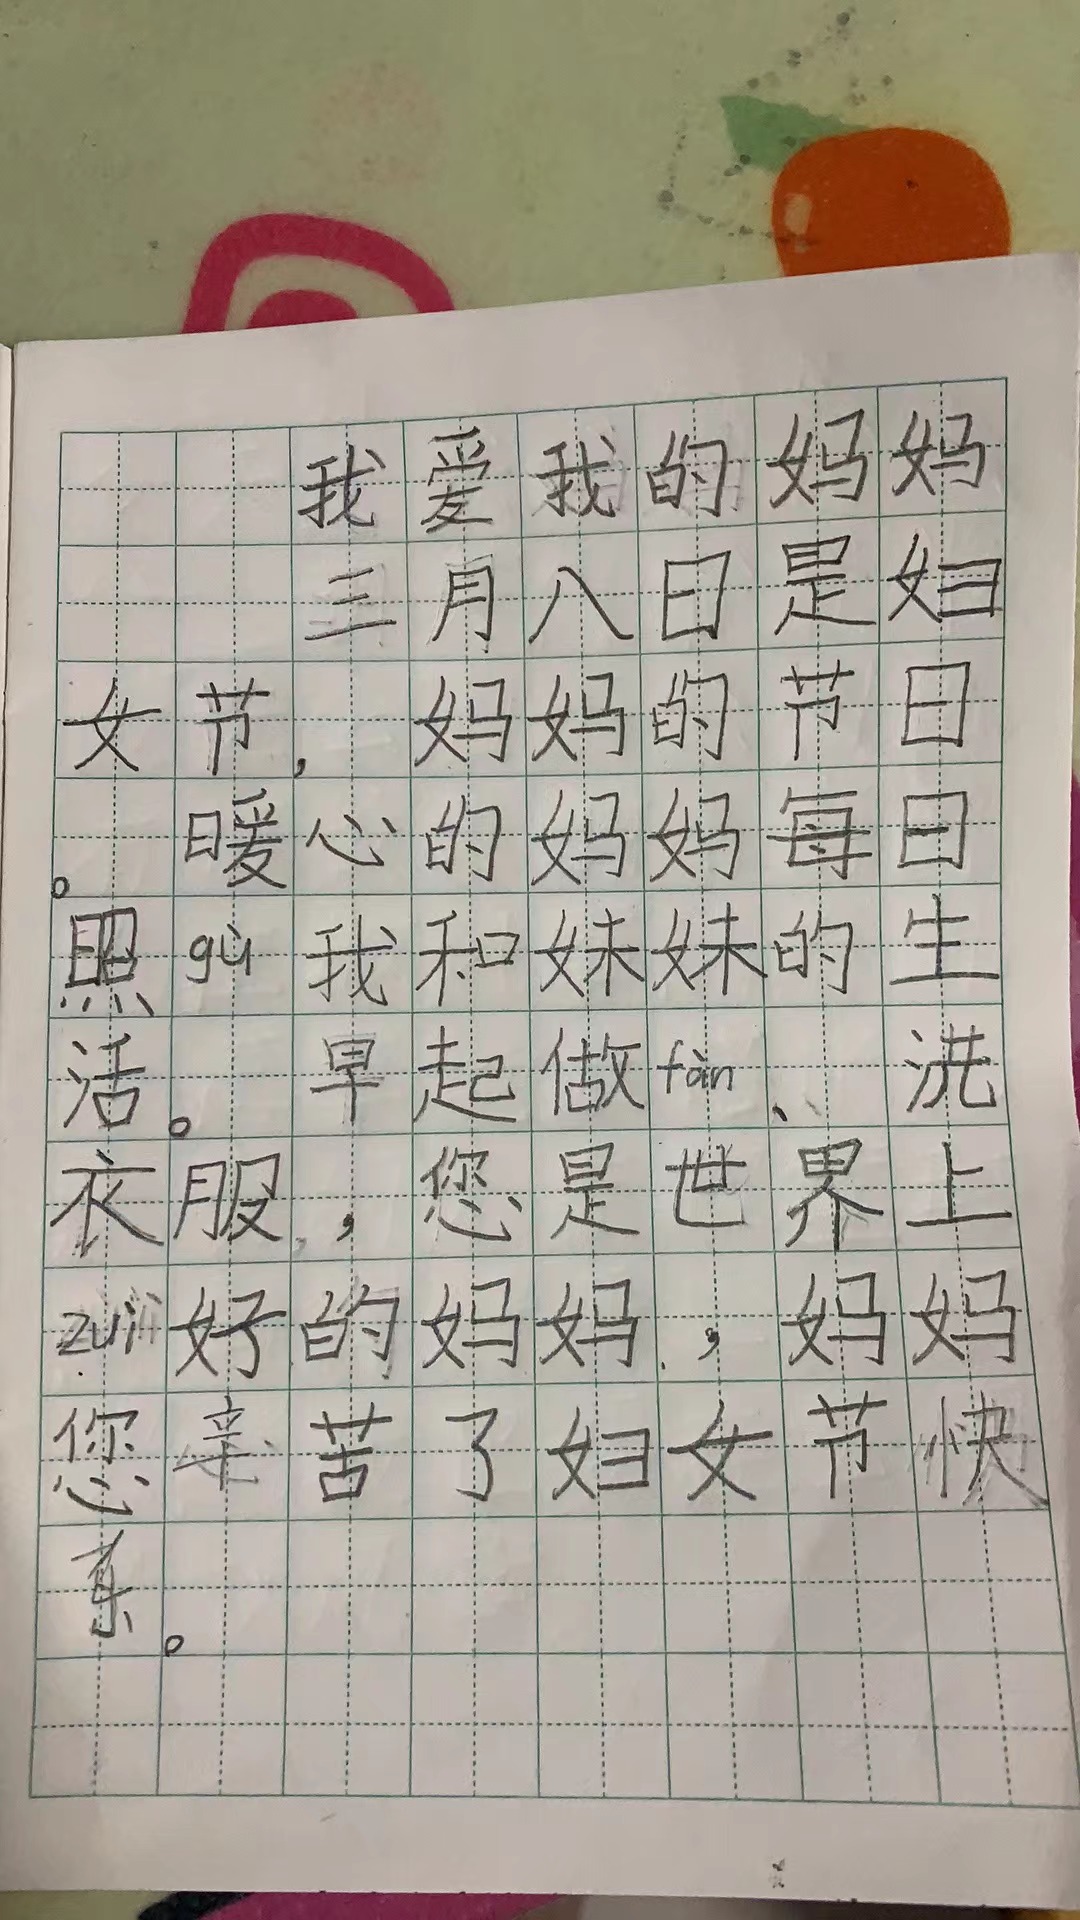 我爱我的妈妈
三月八日是妇
女节，妈妈的节日
。暖心的妈妈每日
照gù我和妹妹的生
活。早起做fàn、洗
衣服，您是世界上
zuì好的妈妈，妈妈
您辛苦了妇女节快
乐。